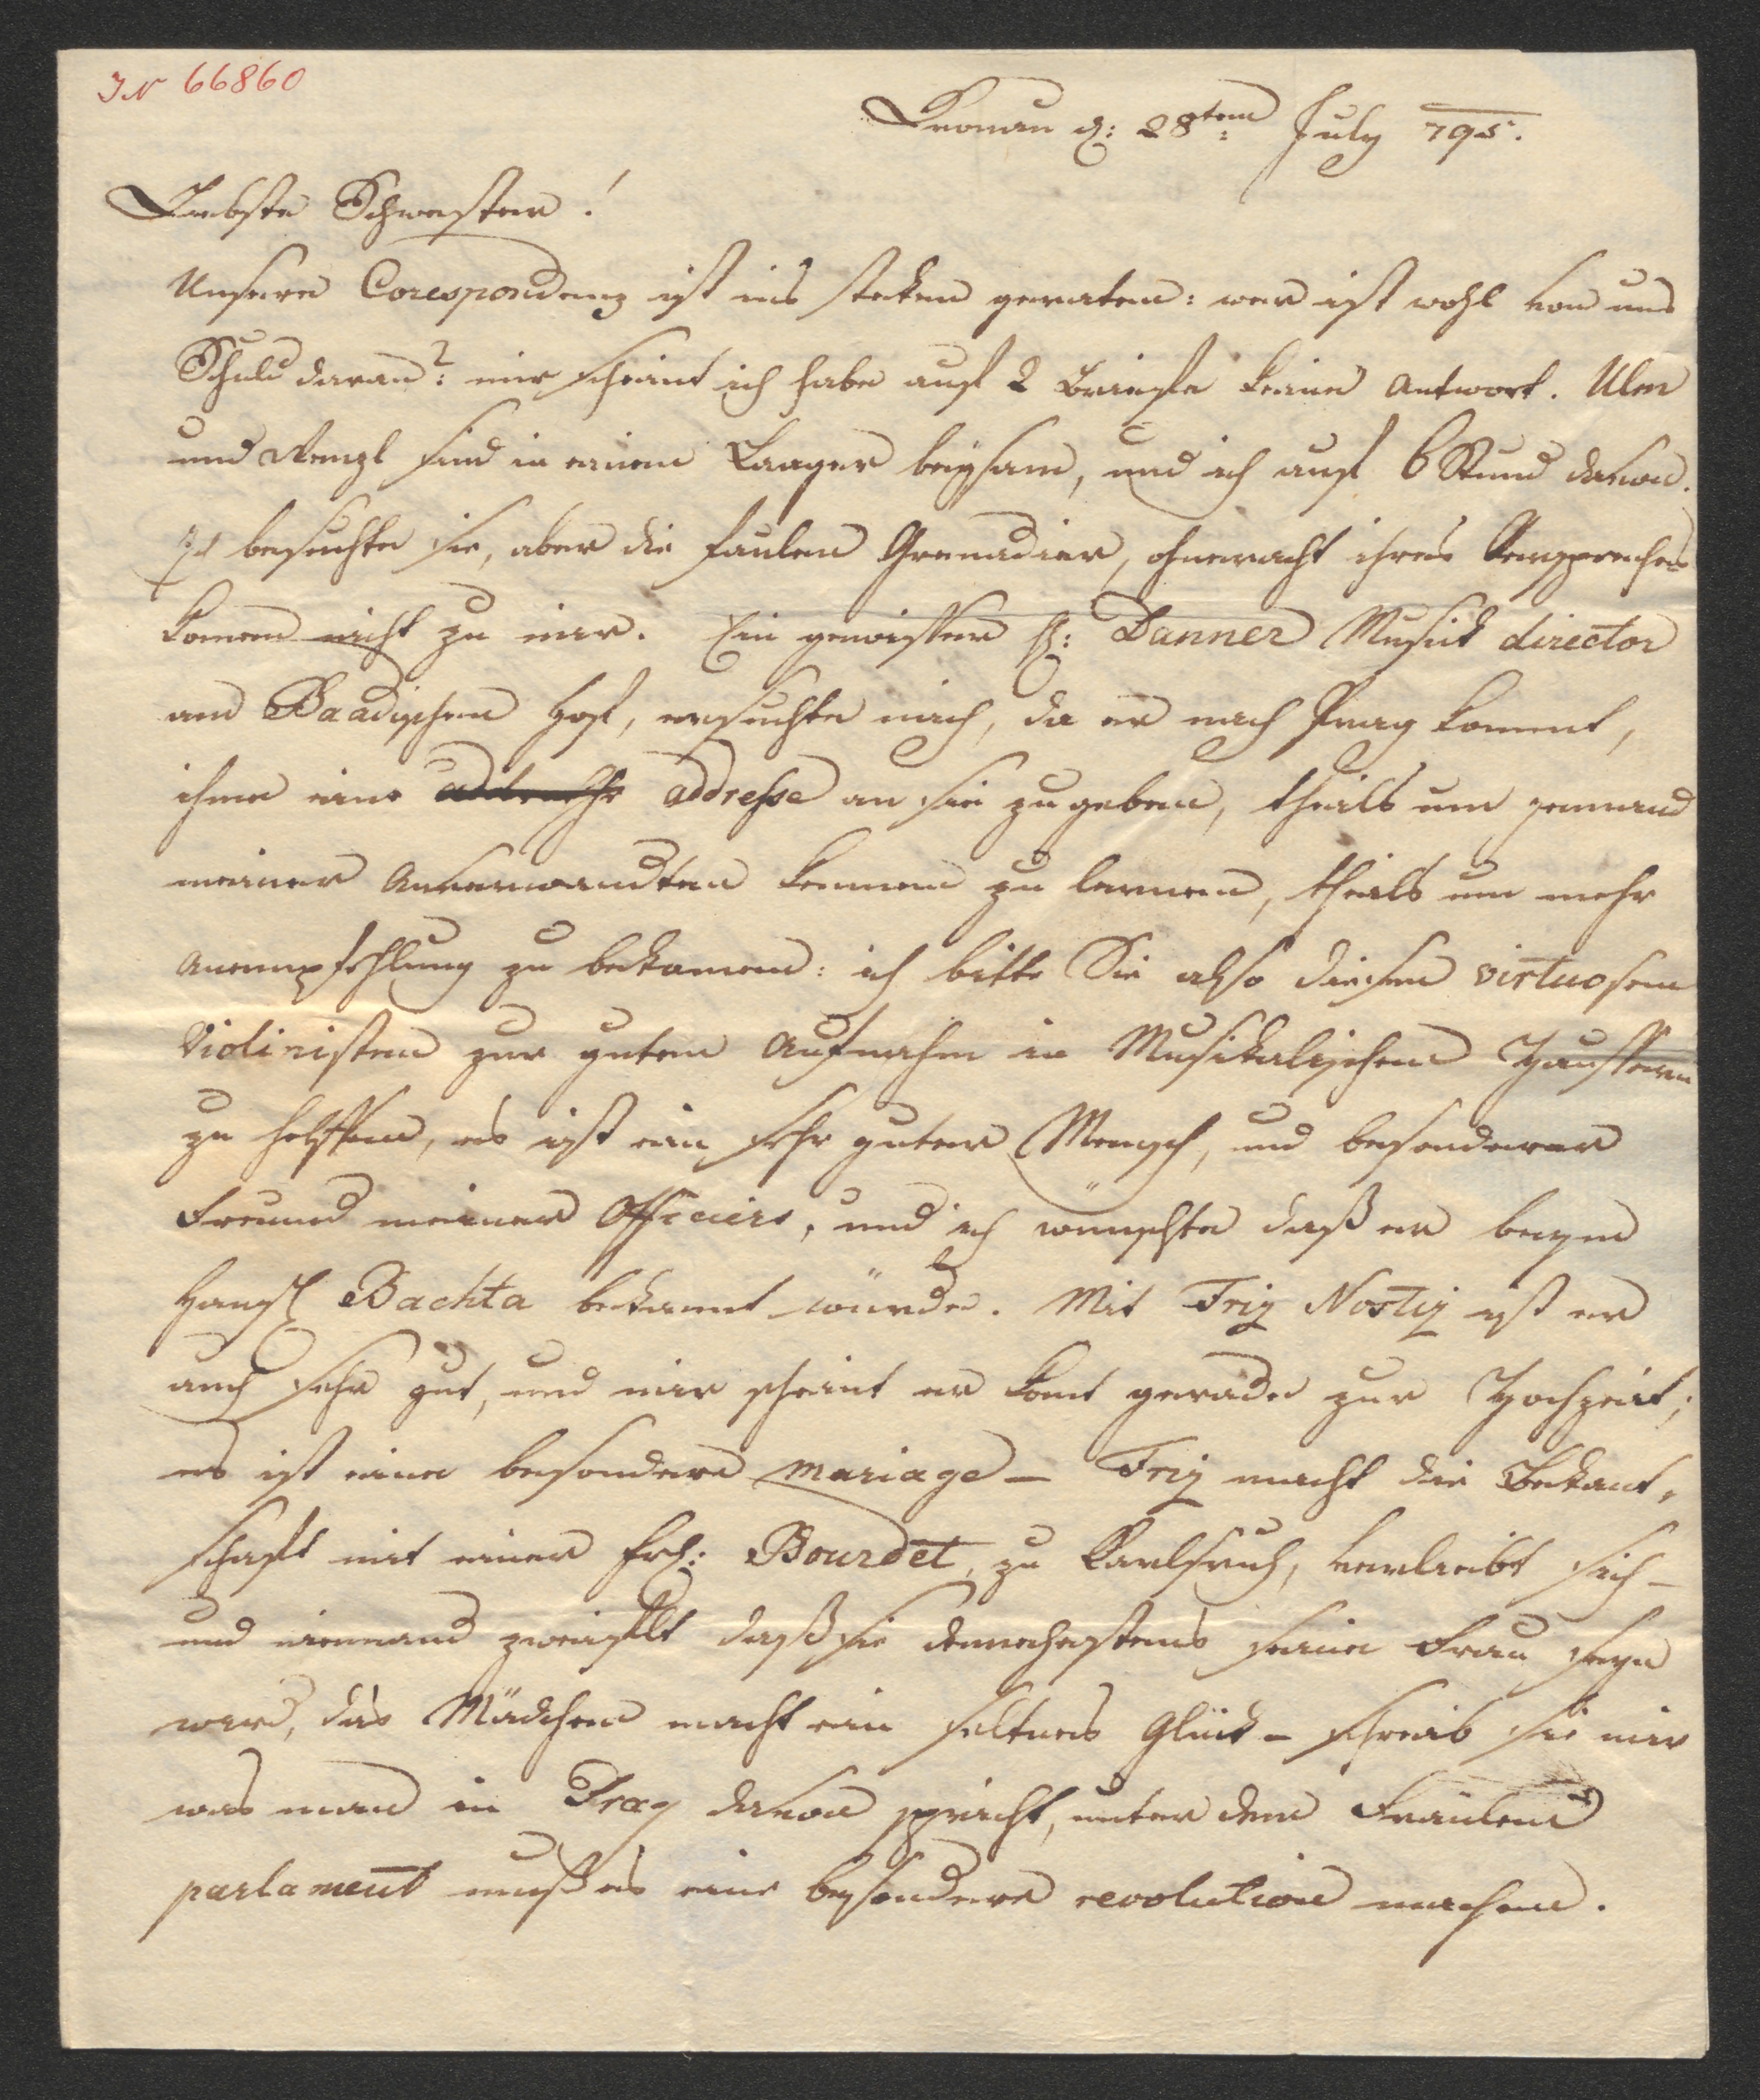 IN 66860
Kronau d: 28ten July 795.
Liebste Schwester!
Unsere Corespondenz ist ins steken geraten: wer ist wohl von uns
Schuld daran?: mir scheint ich habe auf 2 Briefe keine Antwort. Ulm
und Wenzl sind in einem Laager beysam, und ich auf 6 Stund davon.
Ich besuchte sie, aber die faulen Grenadier, ohneracht ihres Versprechens
komen nicht zu mir. Ein gewisser H: Danner Musick director
am Baadischen Hof, ersuchte mich, da er nach Prag kommt,
ihme eine addresse an sie zu geben, theils um jemand
meiner Anverwandten kennen zu lernen, theils um mehr
Anempfehlung zu bekomen: ich bitte Sie also diesen virtuosen
Violinisten zur guten Aufnahm in Musikalischen Haussern
zu helffen, es ist ein sehr guter Mensch, und besonderer
Freund meiner Officiers, und ich wünschte daß er beym
Hansl Bachta bekannt würde. Mit Friz Nostiz ist er
auch sehr gut, und mir scheint er komt gerade zur Hochzeit;
es ist eine besondere mariage – Friz macht die Bekant-
schaft mit einer Frl: Bourdet, zu Karlsruh, verliebt sich –
und niemand zweiflt daß sie demnechstens seine Frau seyn
wird, das Mädchen macht ein seltnes Glük – schreib sie mir
was man in Prag davon spricht, unter dem Fräulen
parlament muß es eine besondere revolution machen.